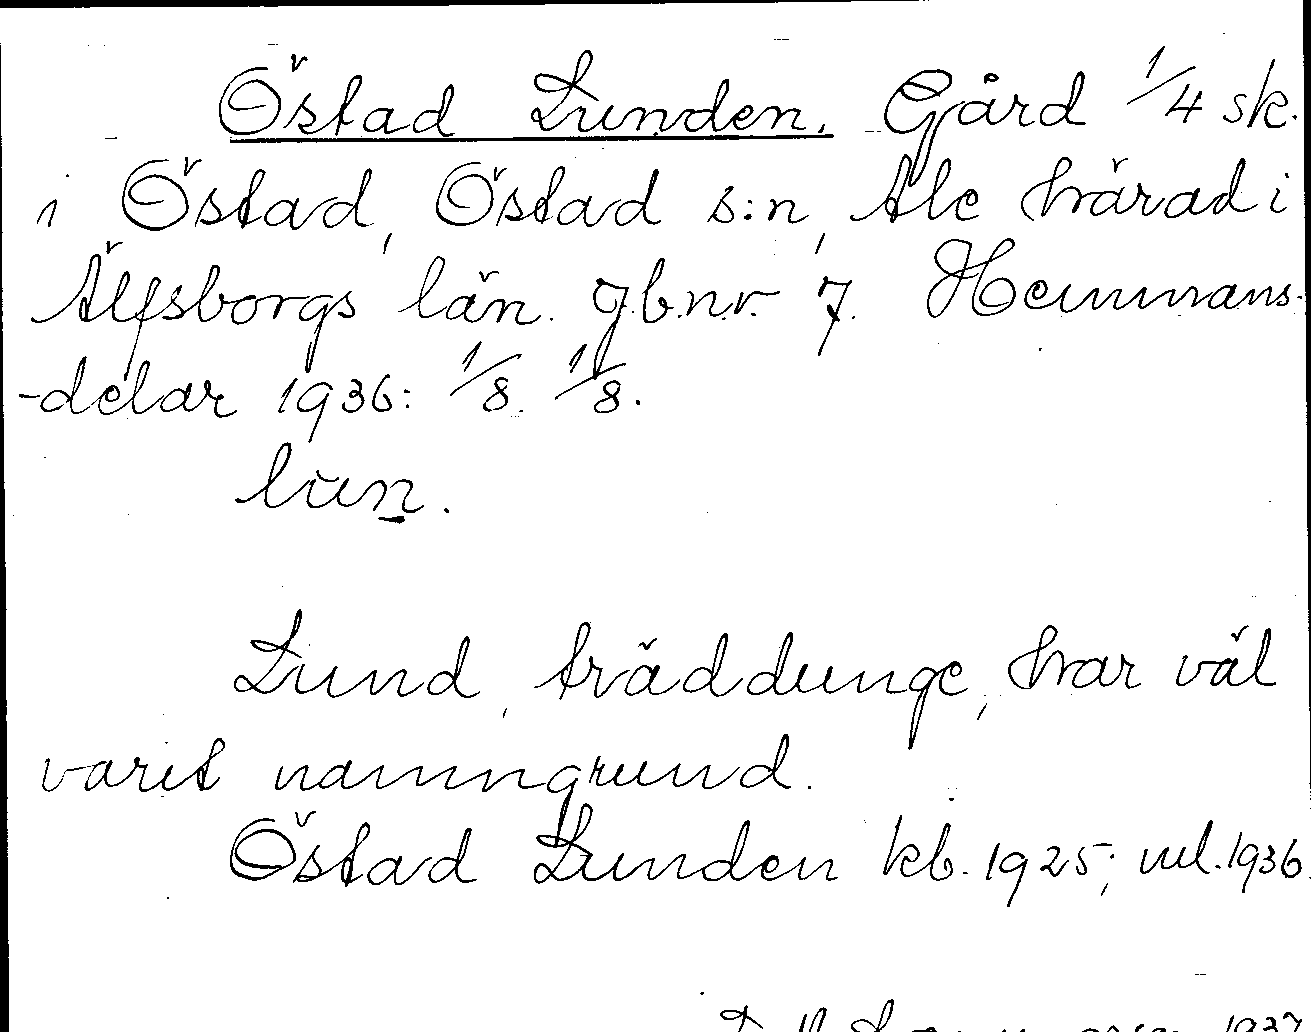 Östad Lunden. Gård 1/4 sk.
i Östad, Östad s:n, Ale härad i
Älfsborgs län. g.b.n.r. 7. Hemmans-
-delar 1936: 1/8. 1/8.
lun.
Lund, träddunge, har väl
varit namngrund.
Östad Lunden kb. 1925; ml. 1936.
1937